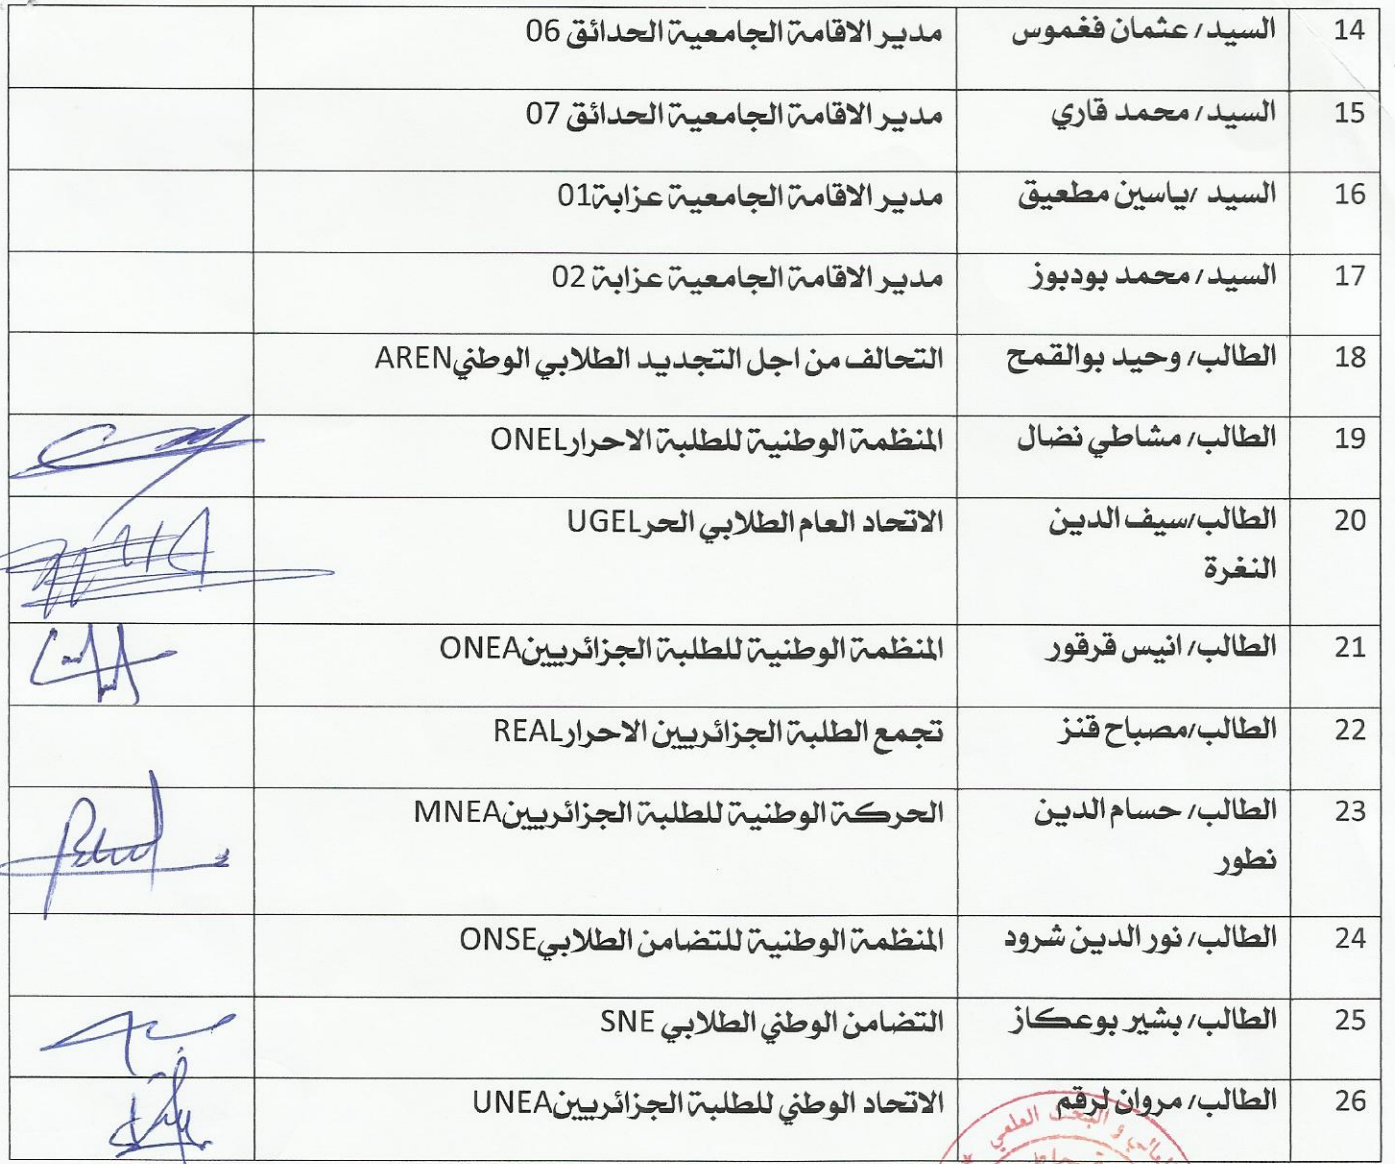 14 السيد/ عثمان فغموس مدير الاقامة الجامعية الحدائق 06
15 السيد/ محمد قاري مدير الاقامة الجامعية الحدائق 07
16 السيد /ياسين مطعيق مدير الاقامة الجامعية عزابة01
17 السيد/ محمد بودبوز مدير الاقامة الجامعية عزابة 02
18 الطالب/ وحيد بوالقمح التحالف من اجل التجديد الطلابي الوطنيAREN
19 الطالب/ مشاطي نضال المنظمة الوطنية للطلبة الاحرارONEL
20 الطالب/سيف الدين الاتحاد العام الطلابي الحرUGEL
النغرة
21 الطالب/ انيس قرقور المنظمة الوطنية للطلبة الجزائريينONEA
22 الطالب/مصباح قنز تجمع الطلبة الجزائريين الاحرارREAL
23 الطالب/ حسام الدين الحركة الوطنية للطلبة الجزائريينMNEA
نطور
24 الطالب/ نور الدين شرود المنظمة الوطنية للتضامن الطلابيONSE
25 الطالب/ بشير بوعكاز التضامن الوطني الطلابي SNE
26 الطالب/ مروان لرقم الاتحاد الوطني للطلبة الجزائريينUNEA
و البحث العلمي